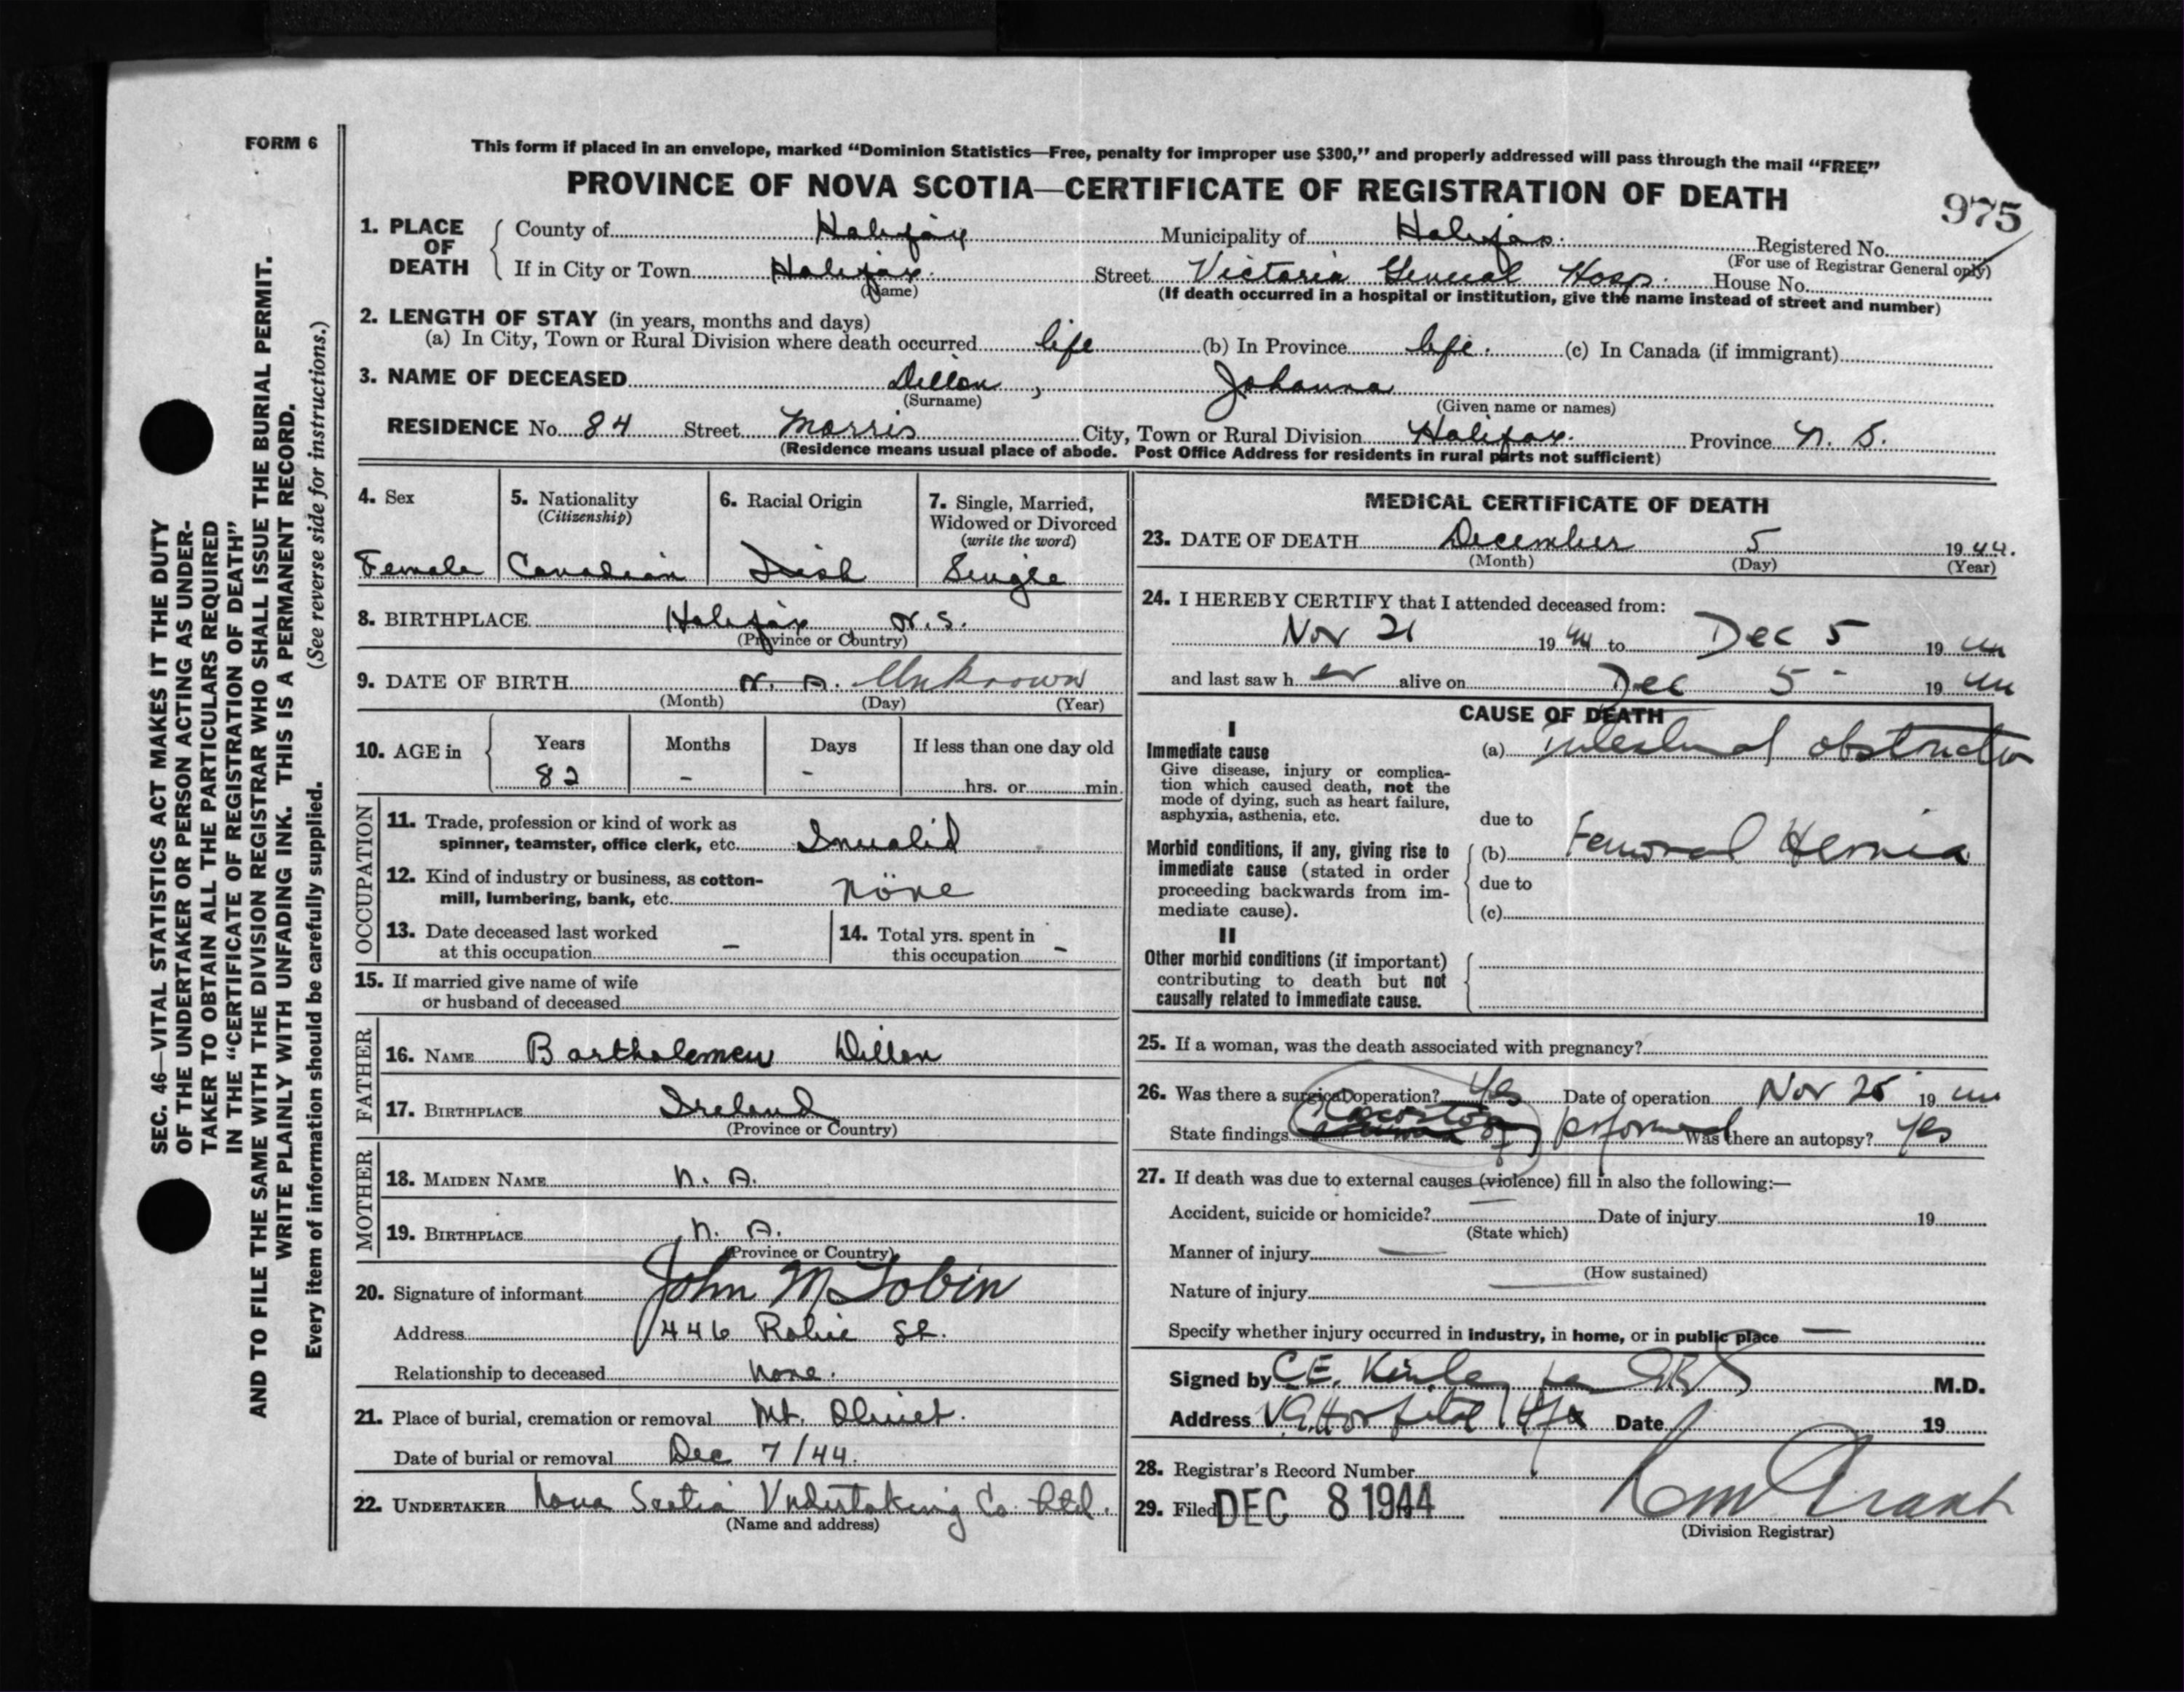 FORM 6
This form if placed in an envelope, marked “Dominion Statistics—Free, penalty for improper use $300,” and properly addressed will pass through the mail “FREE”
PROVINCE OF NOVA SCOTIA—CERTIFICATE OF REGISTRATION OF DEATH
975
1. PLACE OF DEATH
County of Halifax Municipality of Halifax Registered No.
(For use of Registrar General only)
If in City or Town Halifax Street Victoria General Hosp. House No.
(Name) (If death occurred in a hospital or institution, give the name instead of street and number)
2. LENGTH OF STAY (in years, months and days)
(a) In City, Town or Rural Division where death occurred life (b) In Province life. (c) In Canada (if immigrant)
3. NAME OF DECEASED Dillon, Johanna
(Surname) (Given name or names)
RESIDENCE No. 84 Street Morris City, Town or Rural Division Halifax. Province N. S.
(Residence means usual place of abode. Post Office Address for residents in rural parts not sufficient)
4. Sex
Female
5. Nationality
(Citizenship)
Canadian
6. Racial Origin
Irish
7. Single, Married,
Widowed or Divorced
(write the word)
Single
8. BIRTHPLACE Halifax N.S.
(Province or Country)
9. DATE OF BIRTH N. A. Unknown
(Month) (Day) (Year)
10. AGE in
Years Months Days If less than one day old
82 - - hrs. or min.
OCCUPATION
11. Trade, profession or kind of work as
spinner, teamster, office clerk, etc. Invalid
12. Kind of industry or business, as cotton-
mill, lumbering, bank, etc. none
13. Date deceased last worked
at this occupation -
14. Total yrs. spent in
this occupation -
15. If married give name of wife
or husband of deceased
FATHER
16. NAME Bartholemew Dillon
17. BIRTHPLACE Ireland
(Province or Country)
MOTHER
18. MAIDEN NAME N. A.
19. BIRTHPLACE N. A.
(Province or Country)
20. Signature of informant John M Tobin
Address 446 Robie St.
Relationship to deceased None.
21. Place of burial, cremation or removal Mt. Olivet.
Date of burial or removal Dec 7/44.
22. UNDERTAKER Nova Scotia Undertaking Co. Ltd.
(Name and address)
MEDICAL CERTIFICATE OF DEATH
23. DATE OF DEATH December 5 1944.
(Month) (Day) (Year)
24. I HEREBY CERTIFY that I attended deceased from:
Nov 21 1944 to Dec 5 1944
and last saw her alive on Dec 5 - 1944
CAUSE OF DEATH
I
Immediate cause
Give disease, injury or complica-
tion which caused death, not the
mode of dying, such as heart failure,
asphyxia, asthenia, etc.
(a) Intestinal obstruction
due to
Morbid conditions, if any, giving rise to
immediate cause (stated in order
proceeding backwards from im-
mediate cause).
(b) Femoral Hernia
due to
(c)
II
Other morbid conditions (if important)
contributing to death but not
causally related to immediate cause.
25. If a woman, was the death associated with pregnancy?
26. Was there a surgical operation? Yes Date of operation Nov 25 1944
State findings performed Was there an autopsy? Yes
27. If death was due to external causes (violence) fill in also the following:—
Accident, suicide or homicide? Date of injury 19
(State which)
Manner of injury —
(How sustained)
Nature of injury —
Specify whether injury occurred in industry, in home, or in public place —
Signed by C.E. Kinley M.D.
Address V.G. Hospital Hfx Date 19
28. Registrar's Record Number
29. Filed DEC 8 1944
Grant
(Division Registrar)
SEC. 46—VITAL STATISTICS ACT MAKES IT THE DUTY
OF THE UNDERTAKER OR PERSON ACTING AS UNDER-
TAKER TO OBTAIN ALL THE PARTICULARS REQUIRED
IN THE “CERTIFICATE OF REGISTRATION OF DEATH”
AND TO FILE THE SAME WITH THE DIVISION REGISTRAR WHO SHALL ISSUE THE BURIAL PERMIT.
WRITE PLAINLY WITH UNFADING INK. THIS IS A PERMANENT RECORD.
Every item of information should be carefully supplied. (See reverse side for instructions.)